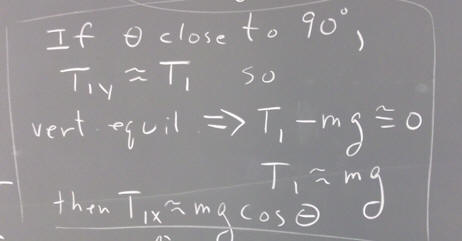 If θ close to 90°,
T₁y ≈ T₁ so
vert. equil ⇒ T₁ - mg ≅ 0
T₁ ≈ mg
then T₁x ≈ mg cos θ